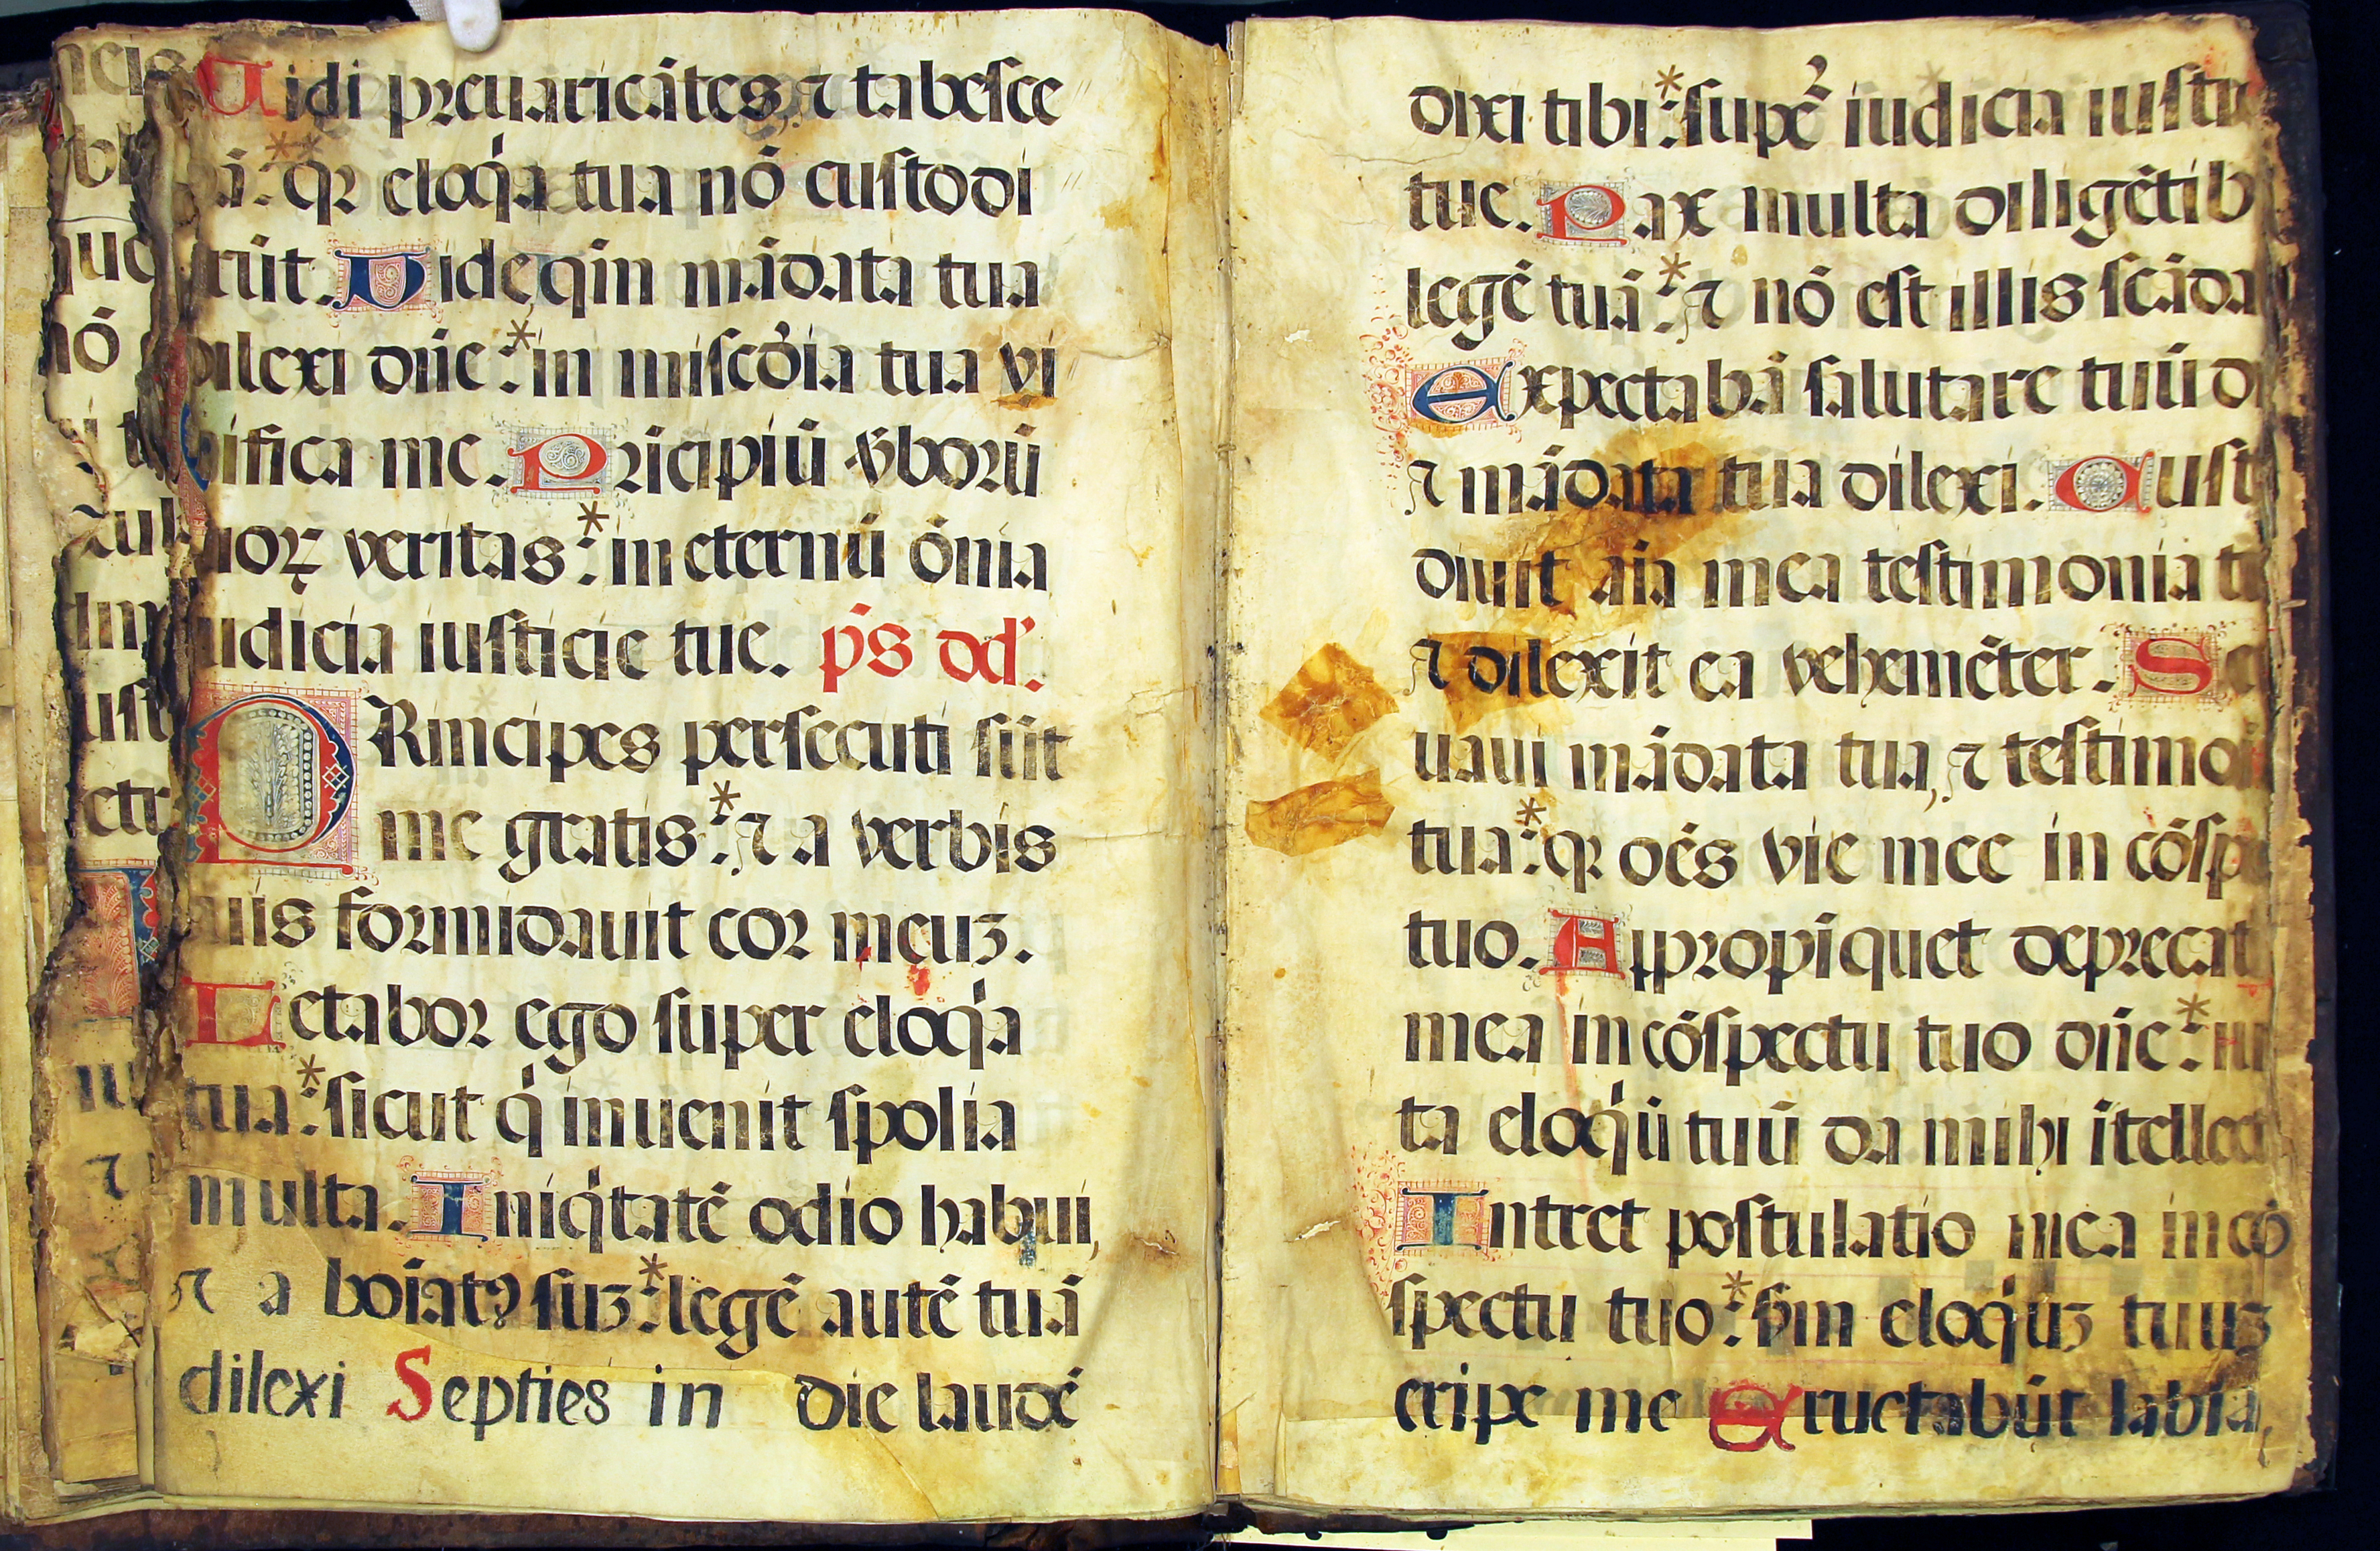 Uidi preuaricãtes, ⁊ tabesce
ã: * qꝛ eloq̍a tua nõ custodi
rũt. Videqm̃ mãdata tua
dilexi dñe: * in miscďia tua vi
uifica me. Prĩcipiũ ṽborũ
tuoꝝ veritas: * in eternũ õnia
iudicia iusticie tue. p̄s dď.
PRincipes persecuti sũt
me gratis: * ⁊ a verbis
tuis formidauit cor meuꝫ.
Letabor ego super eloq̍a
tua: * sicut q̍ inuenit spolia
multa. Iniq̍tatẽ odio habui,
⁊ a boĩatꝰ suꝫ: * legẽ autẽ tuã
dilexi Septies in die laudẽ
dixi tibi: * supẽ² iudicia iusti
tue. Pax multa diligẽtib
legẽ tuã: * ⁊ nõ est illis scãda
Expectabã salutare tuũ d
⁊ mãdata tua dilexi. Cust
diuit aĩa mea testimonia t
⁊ dilexit ea vehemẽter. S
uaui mãdata tua, ⁊ testimo
tua: * qꝛ oẽs vie mee in cõspe
tuo. Appropĩquet deprecat
mea in cõspectu tuo dñe: * iu
ta eloq̍ũ tuũ da mihi ĩtellect
Intret postulatio mea in cõ
spectu tuo: * s̃m eloq̍uꝫ tuuꝫ
eripe me Eructabũt labia,